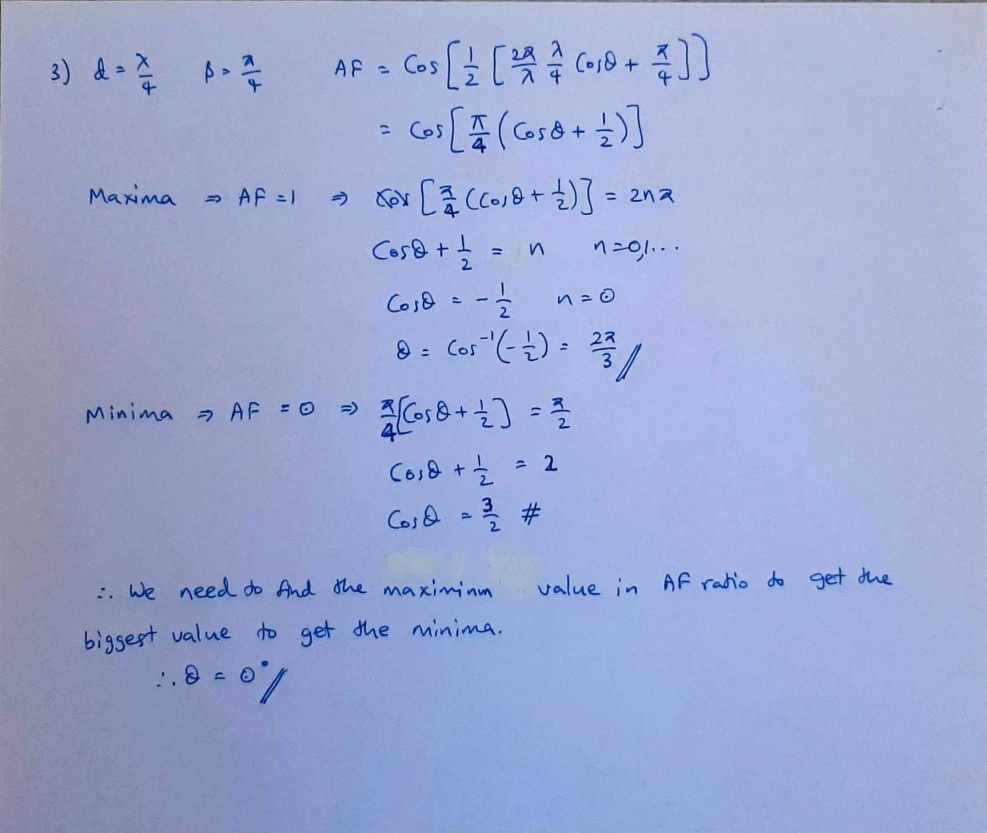 3) d = λ/4 β = π/4 AF = Cos[1/2 [2π/λ λ/4 Cosθ + π/4]]
= Cos[π/4 (Cosθ + 1/2)]
Maxima ⇒ AF = 1 ⇒ [π/4 (Cosθ + 1/2)] = 2nπ
Cosθ + 1/2 = n n=0,1...
Cosθ = -1/2 n = 0
θ = Cos⁻¹(-1/2) = 2π/3 //
Minima ⇒ AF = 0 ⇒ π/4 [Cosθ + 1/2] = π/2
Cosθ + 1/2 = 2
Cosθ = 3/2 #
∴ We need to find the maximinm value in AF ratio to get the
biggest value to get the minima.
∴ θ = 0° //